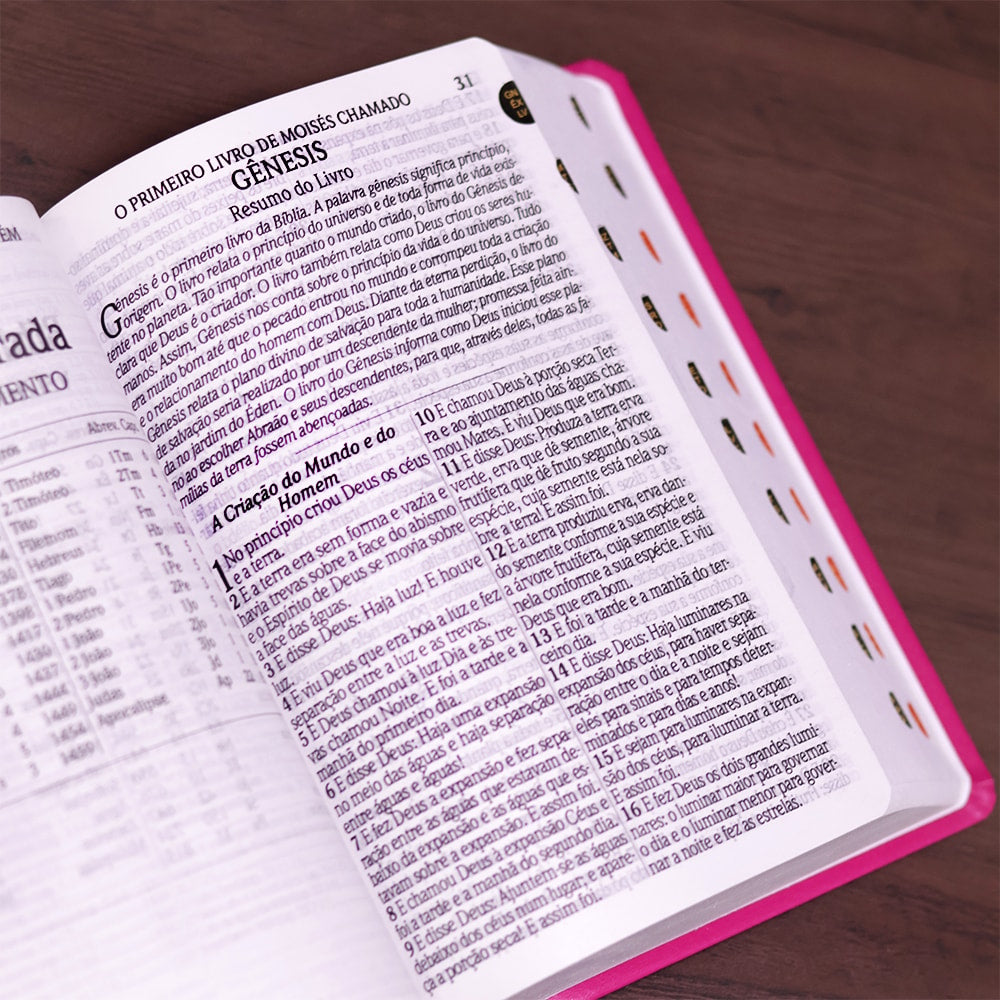 ÉM
rada
MENTO
Abrev. Cap.
Timóteo 1Tm
2 Timóteo 2Tm
Tito Tt
Filemom Fm
Hebreus Hb
Tiago Tg
1 Pedro 1Pe
2 Pedro 2Pe
1 João 1Jo
2 João 2Jo
3 João 3Jo
Judas Jd
Apocalipse Ap
31
O PRIMEIRO LIVRO DE MOISÉS CHAMADO
GÊNESIS
Resumo do Livro
Gênesis é o primeiro livro da Bíblia. A palavra gênesis significa princípio,
origem. O livro relata o princípio do universo e de toda forma de vida exis-
tente no planeta. Tão importante quanto o mundo criado, o livro do Gênesis de-
clara que Deus é o criador. O livro também relata como Deus criou os seres hu-
manos. Assim, Gênesis nos conta sobre o princípio da vida e do universo. Tudo
era muito bom até que o pecado entrou no mundo e corrompeu toda a criação
e o relacionamento do homem com Deus. Diante da eterna perdição, o livro do
Gênesis relata o plano divino de salvação para toda a humanidade. Esse plano
de salvação seria realizado por um descendente da mulher; promessa feita ain-
da no jardim do Éden. O livro do Gênesis informa como Deus iniciou esse pla-
no ao escolher Abraão e seus descendentes, para que, através deles, todas as fa-
mílias da terra fossem abençoadas.
A Criação do Mundo e do
Homem
1 No princípio criou Deus os céus
e a terra.
2 E a terra era sem forma e vazia e
havia trevas sobre a face do abismo
e o Espírito de Deus se movia sobre
a face das águas.
3 E disse Deus: Haja luz! E houve
luz.
4 E viu Deus que era boa a luz e fez
separação entre a luz e as trevas.
5 E Deus chamou à luz Dia e às tre-
vas chamou Noite. E foi a tarde e a
manhã do primeiro dia.
6 E disse Deus: Haja uma expansão
no meio das águas e haja separação
entre águas e águas!
7 E fez Deus a expansão e fez sepa-
ração entre as águas que estavam de-
baixo da expansão e as águas que es-
tavam sobre a expansão. E assim foi.
8 E chamou Deus à expansão Céus e
foi a tarde e a manhã do segundo dia.
9 E disse Deus: Ajuntem-se as águas
debaixo dos céus num lugar; e apare-
ça a porção seca! E assim foi.
10 E chamou Deus à porção seca Ter-
ra e ao ajuntamento das águas cha-
mou Mares. E viu Deus que era bom.
11 E disse Deus: Produza a terra erva
verde, erva que dê semente, árvore
frutífera que dê fruto segundo a sua
espécie, cuja semente está nela so-
bre a terra! E assim foi.
12 E a terra produziu erva, erva dan-
do semente conforme a sua espécie e
a árvore frutífera, cuja semente está
nela conforme a sua espécie. E viu
Deus que era bom.
13 E foi a tarde e a manhã do ter-
ceiro dia.
14 E disse Deus: Haja luminares na
expansão dos céus, para haver sepa-
ração entre o dia e a noite e sejam
eles para sinais e para tempos deter-
minados e para dias e anos!
15 E sejam para luminares na expan-
são dos céus, para iluminar a terra.
E assim foi.
16 E fez Deus os dois grandes lumi-
nares: o luminar maior para governar
o dia e o luminar menor para gover-
nar a noite e fez as estrelas.
GN
ÊX
LV